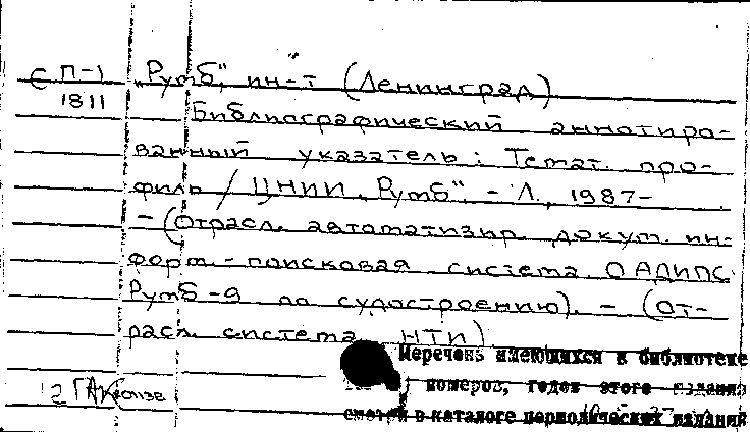 С П-1 „Румб“, ин-т (Ленинград)
1811
Библиографический аннотиро-
ванный указатель: Темат. про-
филь / ЦНИИ „Румб“. - Л., 1987-
- (Отрасл. автоматизир. докум. ин-
форм.-поисковая система ОАДИПС
Румб-9 по судостроению). - (От-
расл. система НТИ)
Перечень имеющихся в библиотеке
номеров, годов этого издания
смотри в каталоге периодических изданий